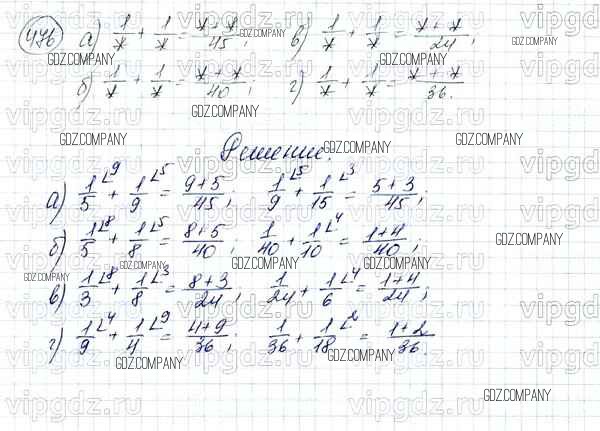 476 а) 1/* + 1/* = (*+*)/45; в) 1/* + 1/* = (*+*)/24;
б) 1/* + 1/* = (*+*)/40; г) 1/* + 1/* = (*+*)/36.
Решение.
а) 1/5 ∠9 + 1/9 ∠5 = (9+5)/45; 1/9 ∠5 + 1/15 ∠3 = (5+3)/45;
б) 1/5 ∠8 + 1/8 ∠5 = (8+5)/40; 1/40 + 1/10 ∠4 = (1+4)/40;
в) 1/3 ∠8 + 1/8 ∠3 = (8+3)/24; 1/24 + 1/6 ∠4 = (1+4)/24;
г) 1/9 ∠4 + 1/4 ∠9 = (4+9)/36; 1/36 + 1/18 ∠2 = (1+2)/36.
GDZ.COMPANY
vipgdz.ru